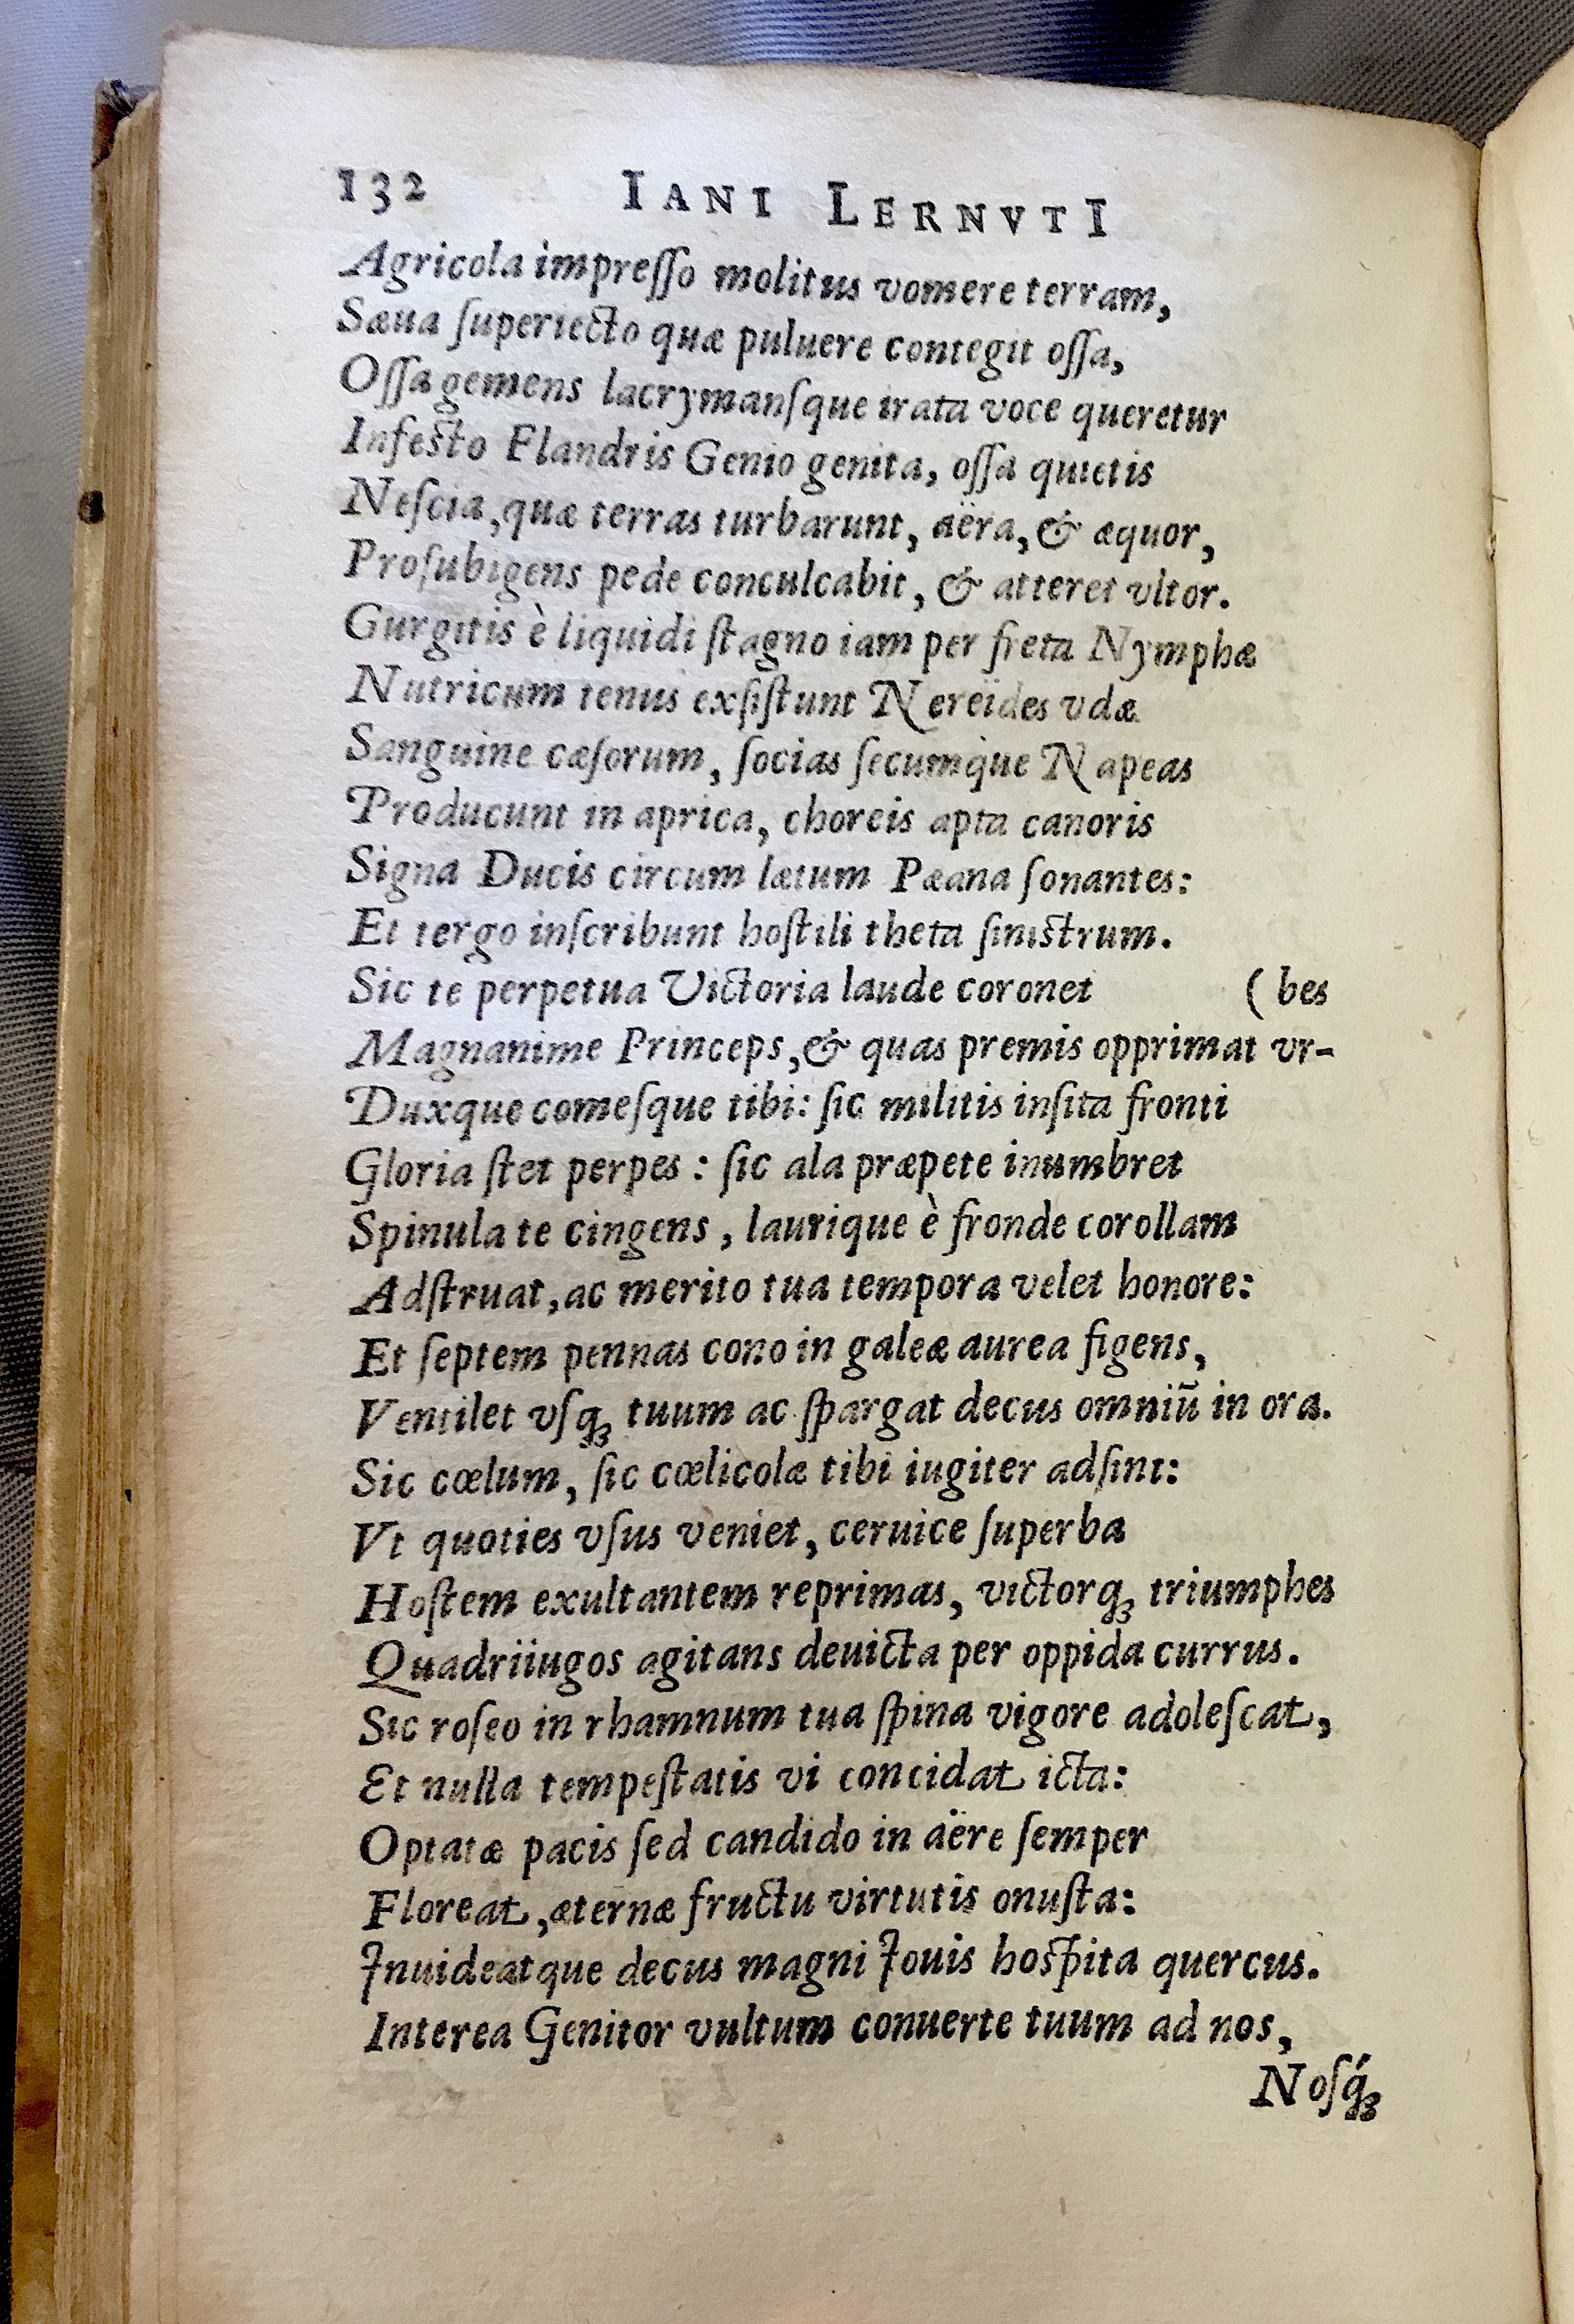 132 IANI LERNVTI
Agricola impreſſo molitus vomere terram,
Sæua ſuperiecto quæ puluere contegit oſſa,
Oſſa gemens lacrymanſque irata voce queretur
Infeſto Flandris Genio genita, oſſa quietis
Neſcia, quæ terras turbarunt, aëra, & æquor,
Proſubigens pede conculcabit, & atteret vltor.
Gurgitis è liquidi ſtagno iam per freta Nymphæ
Nutricum tenus exſiſtunt Nereïdes vdæ
Sanguine cæſorum, ſocias ſecumque Napeas
Producunt in aprica, choreis apta canoris
Signa Ducis circum lætum Pæana ſonantes:
Et tergo inſcribunt hoſtili theta ſiniſtrum.
Sic te perpetua Victoria laude coronet (bes
Magnanime Princeps, & quas premis opprimat vr-
Duxque comeſque tibi: ſic militis inſita fronti
Gloria ſtet perpes: ſic ala præpete inumbret
Spinula te cingens, laurique è fronde corollam
Adſtruat, ac merito tua tempora velet honore:
Et ſeptem pennas cono in galeæ aurea figens,
Ventilet vſq; tuum ac ſpargat decus omniū in ora.
Sic cœlum, ſic cœlicolæ tibi iugiter adſint:
Vt quoties vſus veniet, ceruice ſuperba
Hoſtem exultantem reprimas, victorq; triumphes
Quadriiugos agitans deuicta per oppida currus.
Sic roſeo in rhamnum tua ſpina vigore adoleſcat,
Et nulla tempeſtatis vi concidat icta:
Optatæ pacis ſed candido in aëre ſemper
Floreat, æternæ fructu virtutis onuſta:
Inuideatque decus magni Iouis hoſpita quercus.
Interea Genitor vultum conuerte tuum ad nos,
Noſq́;